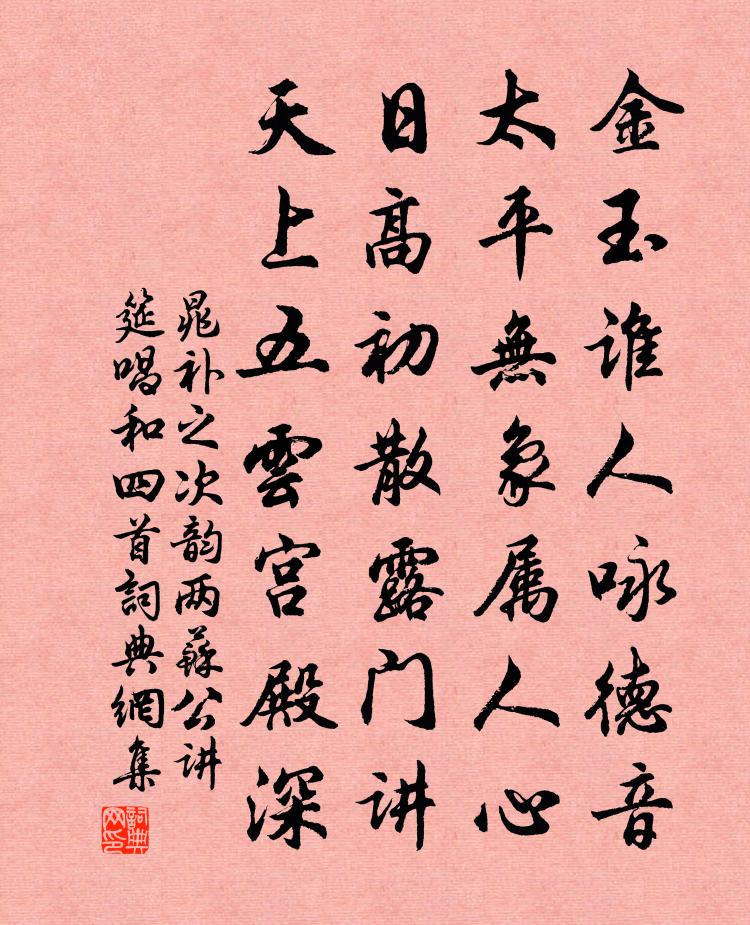 金玉谁人咏德音
太平無象属人心
日高初散露门讲
天上五雲宫殿深
晁补之次韵两蘇公讲
筵唱和四首詞典網集
詞典
网印